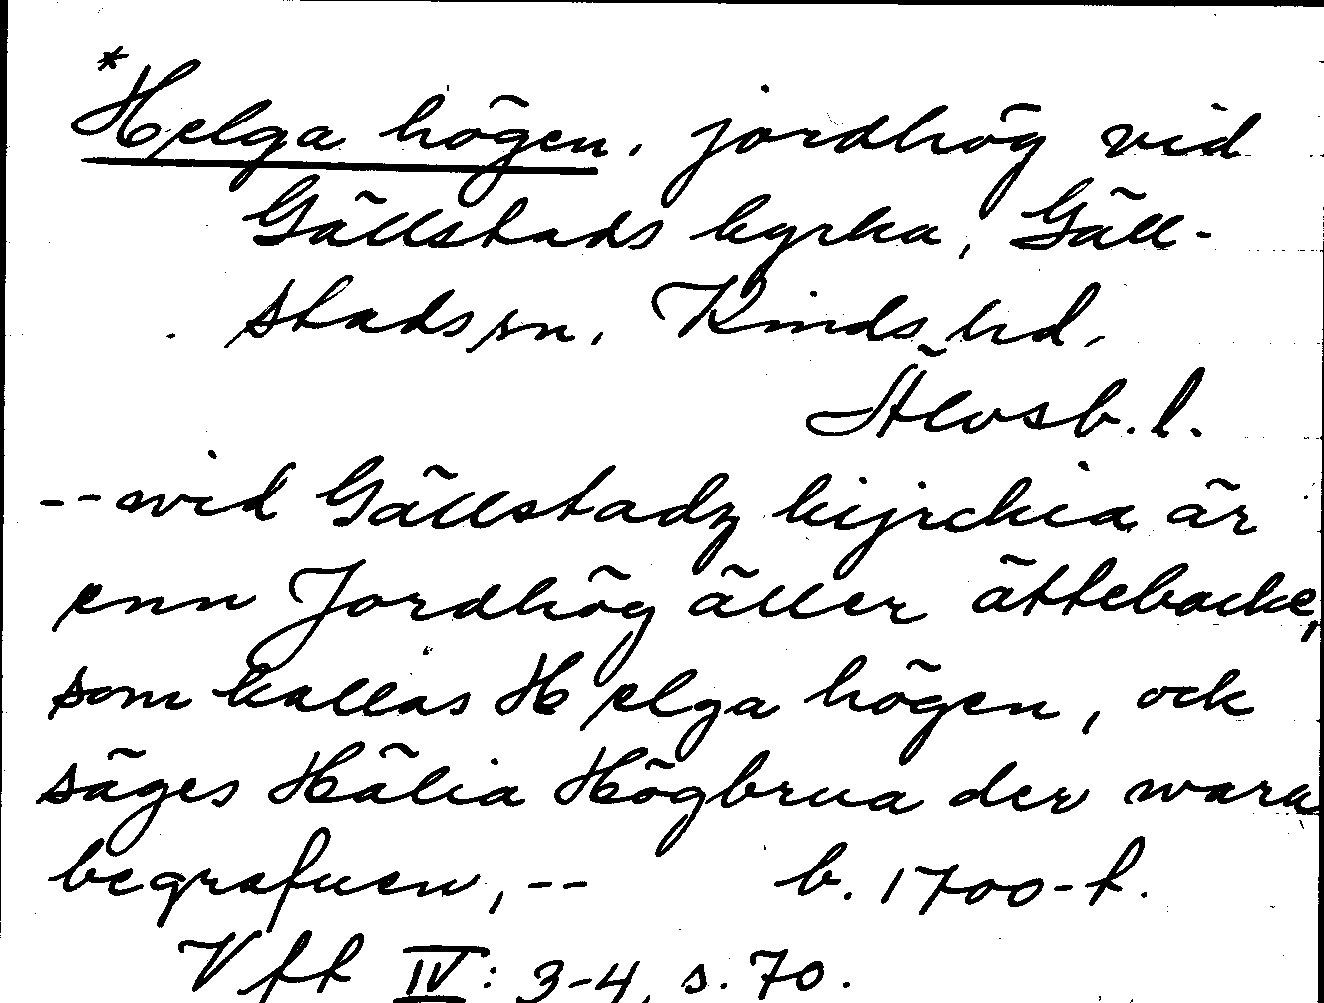 *Helga högen, jordhög vid
Gällstads kyrka, Gäll-
stads sn, Kinds hd,
Älvsb. l.
-- wid Gällstadz kijrckia är
enn Jordhög äller ättebacke,
som kallas Helga högen, ock
säges Hälia Högbrua der wara
begrafuen, -- b. 1700-t.
Vft IV: 3-4, s. 70.